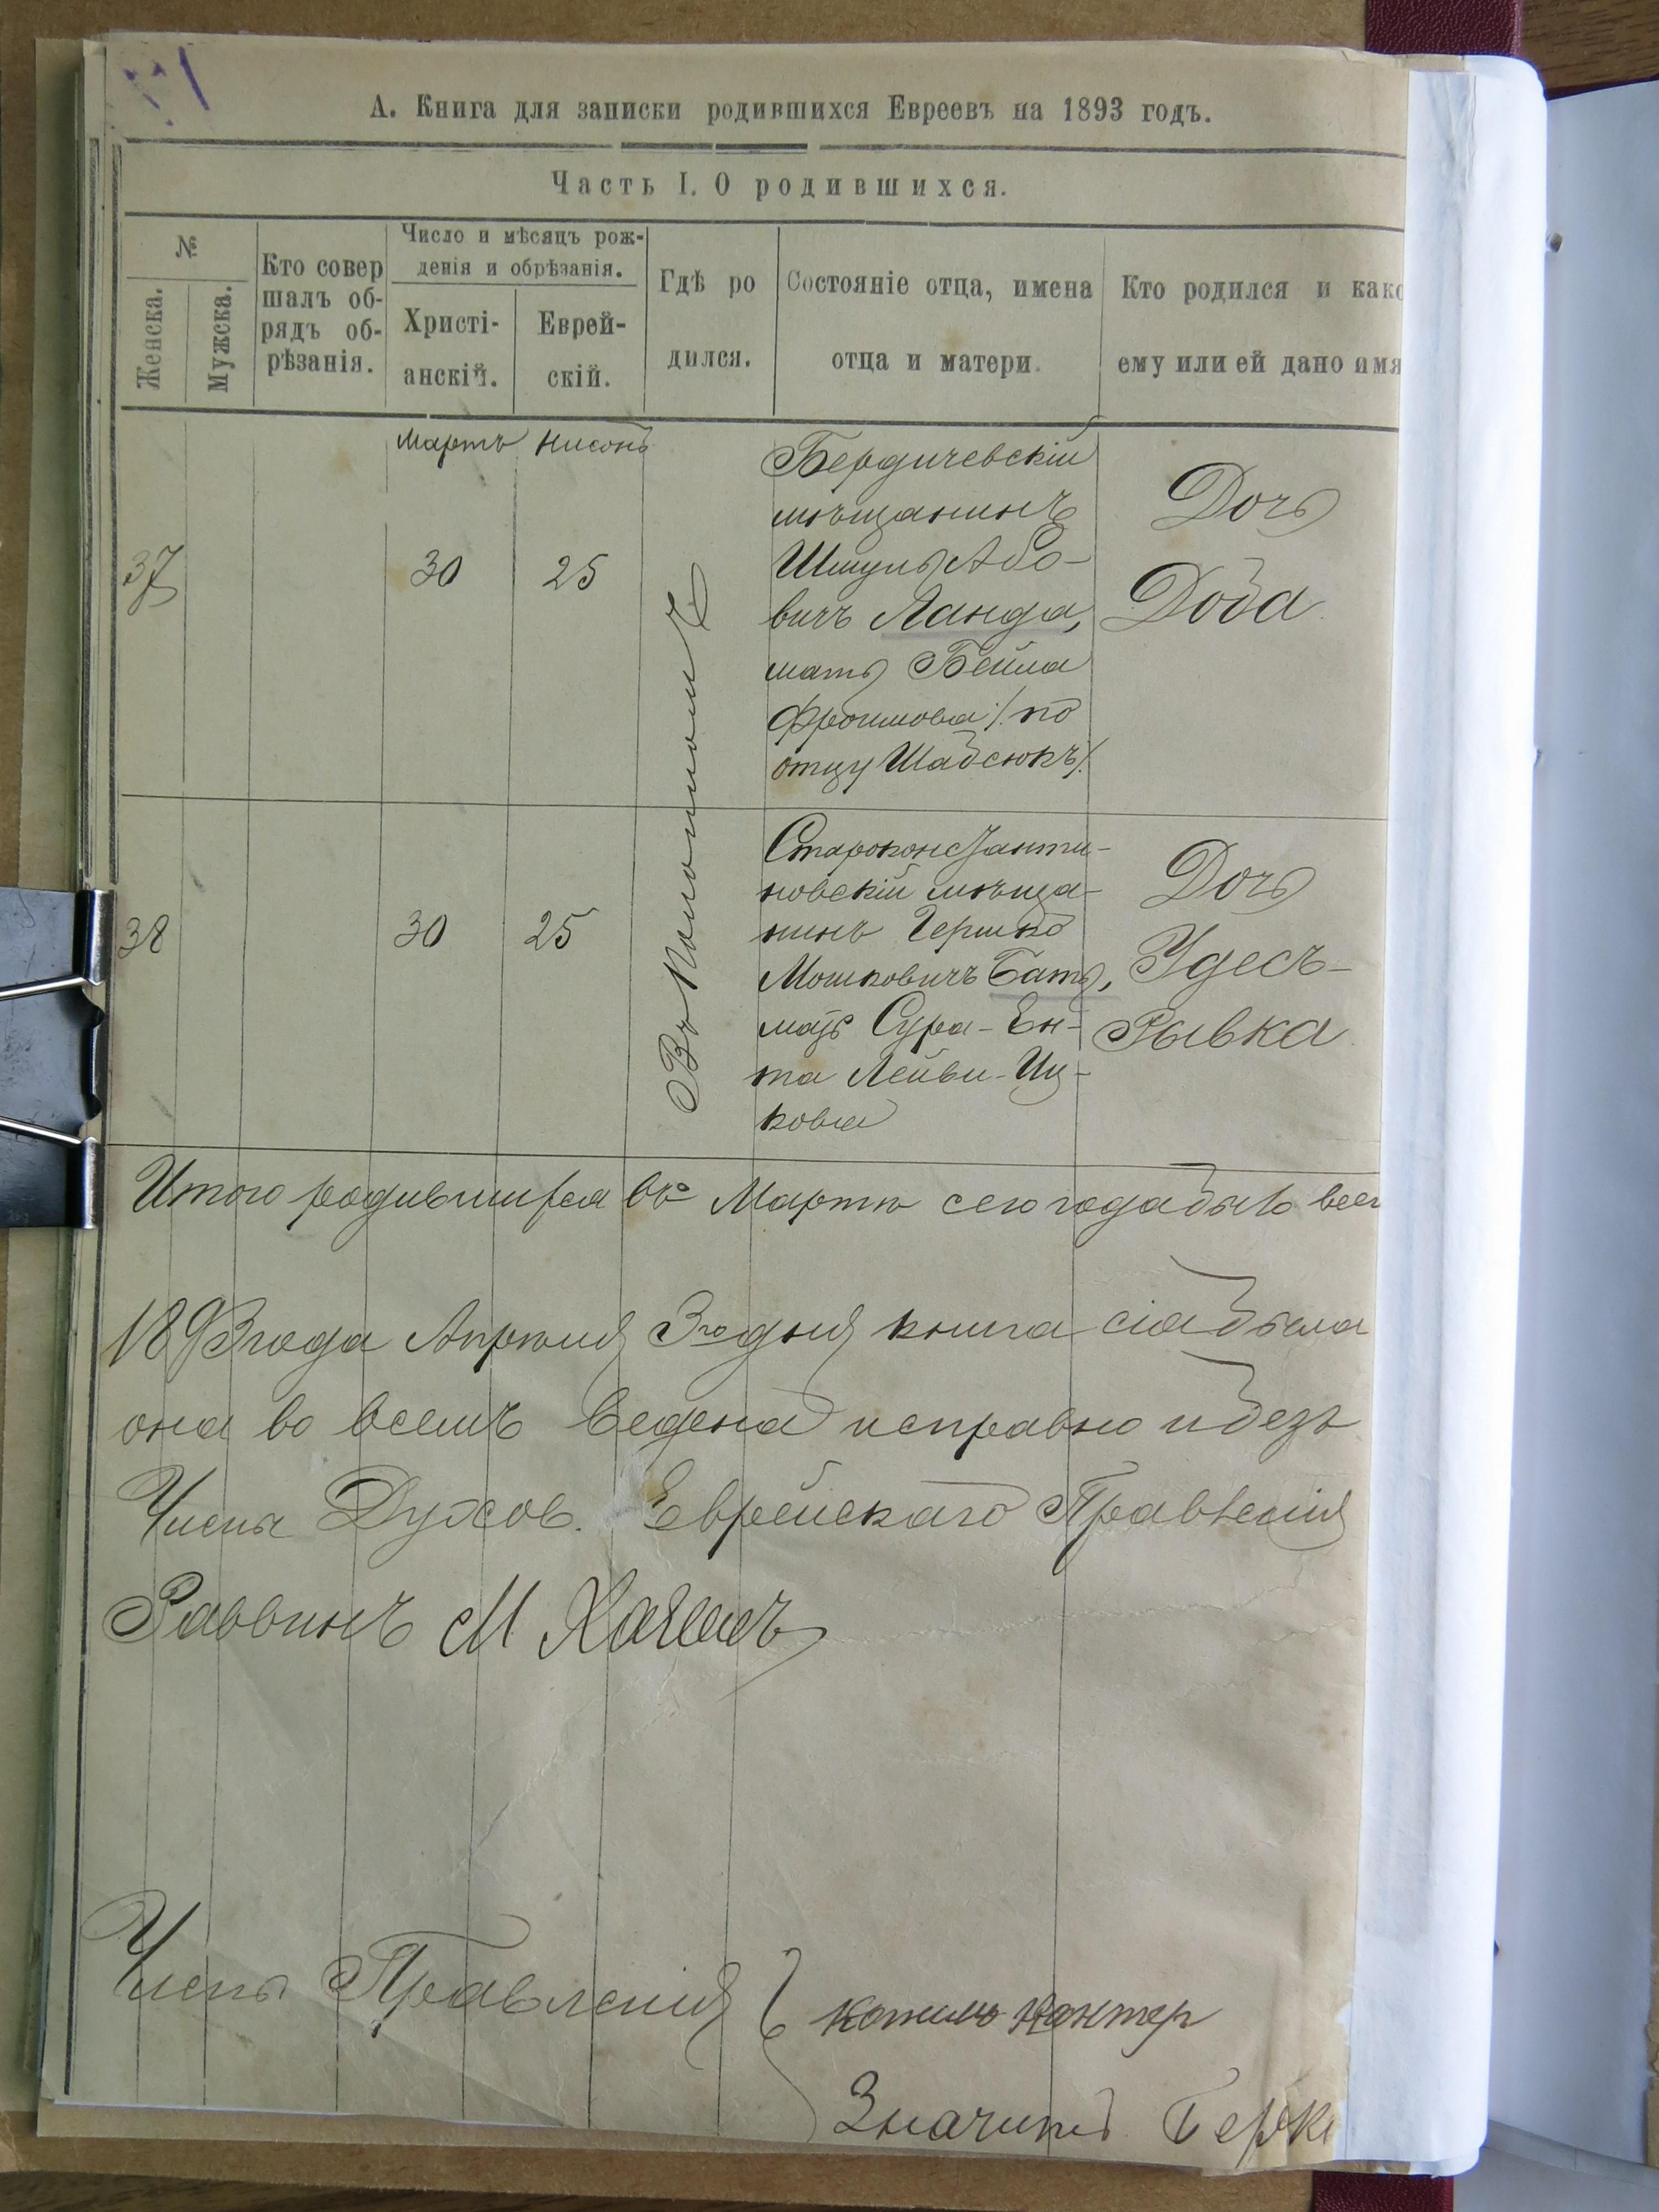 А. Книга для записки родившихся Евреевъ на 1893 годъ.
Часть I. О родившихся.
№
Женска.
Мужска.
Кто совер
шалъ об-
рядъ об-
рѣзанія.
Число и мѣсяцъ рож-
денія и обрѣзанія.
Христі-
анскій.
Еврей-
скій.
Гдѣ ро
дился.
Состояніе отца, имена
отца и матери.
Кто родился и како
ему или ей дано имя
Мартъ Нисонъ
37
30
25
Въ Полономъ
Бердичевскій
мѣщанинъ
Шмуль Або-
вичъ Ланда,
мать Бейла
Фроимова /: по
отцу Шабсюкъ :/
Дочь
Доба
38
30
25
Староконстанти-
новскій мѣща-
нинъ Гершко
Мошковичъ Батъ,
мать Сура-Ен-
та Лейви-Иц-
кова
Дочь
Удесь-
Рывка
Итого родившихся въ Мартѣ сего года было всег
1893 года Апрѣля 3го дня книга сія была
она во всемъ ведена исправно и безъ
Члены Духов. Еврейскаго Правленія
Раввинъ М
Члены Правленія
Кантер